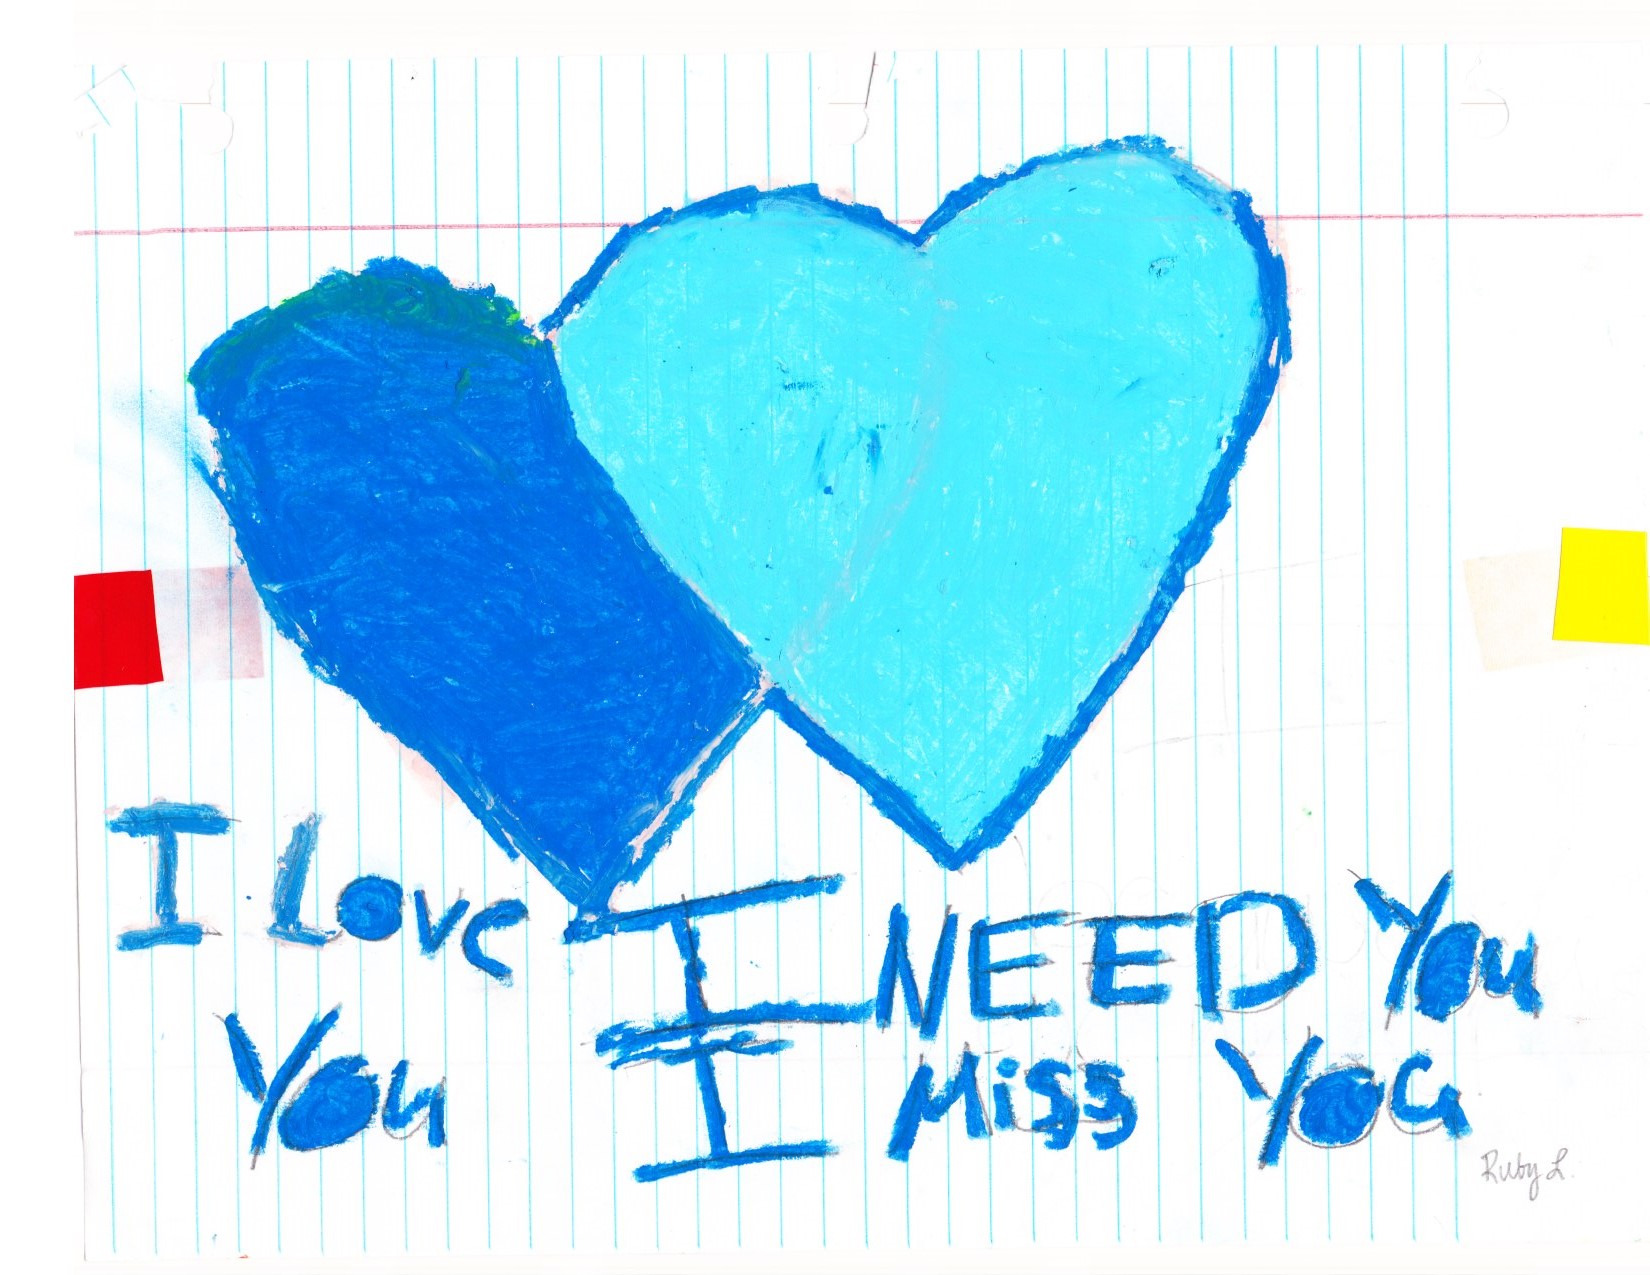 I Love
You
I NEED You
I Miss You
Ruby L.